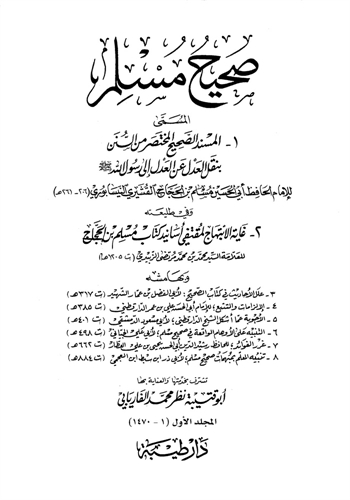 صحيح مسلم
المسمى
١- المسند الصحيح المختصر من السنن
بنقل العدل عن العدل إلى رسول الله ﷺ
للإمام الحافظ أبي الحسين مسلم بن الحجاج القشيري النيسابوري (٢٠٦-٢٦١هـ)
وفي طليعته
٢- غاية الابتهاج لمقتفي أسانيد كتاب مسلم بن الحجاج
للعلامة السيد محمد بن محمد مرتضى الزبيدي (ت ١٢٠٥هـ)
وبهامشه
٣- علل الأحاديث في كتاب الصحيح: لأبي الفضل بن عمار الشهيد (ت ٣١٧هـ)
٤- الإلزامات والتتبع: للإمام أبي الحسن علي بن عمر الدارقطني (ت ٣٨٥هـ)
٥- الأجوبة عما أشكل الشيخ الدارقطني: لأبي مسعود الدمشقي (ت ٤٠١هـ)
٦- التنبيه على الأوهام الواقعة في صحيح مسلم: لأبي علي الجياني (ت ٤٩٨هـ)
٧- غرر الفوائد: للحافظ رشيد الدين أبي الحسين يحيى بن علي العطار (ت ٦٦٢هـ)
٨- تنبيه المعلم بمبهمات صحيح مسلم: لأبي ذر ابن سبط ابن العجمي (ت ٨٨٤هـ)
تشرف بخدمتها والعناية بها
أبو قتيبة نظر محمد الفاريابي
المجلد الأول (١ - ١٤٧٠)
دار طيبة